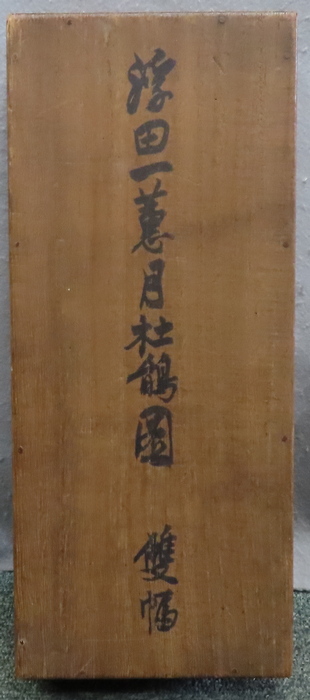 浮田一蕙月杜鵑図 雙幅